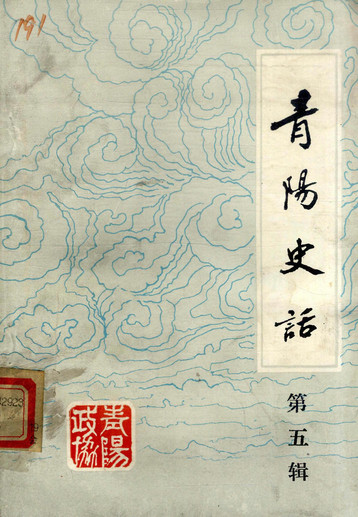 191
青陽史話
第五辑
青陽政协
2923